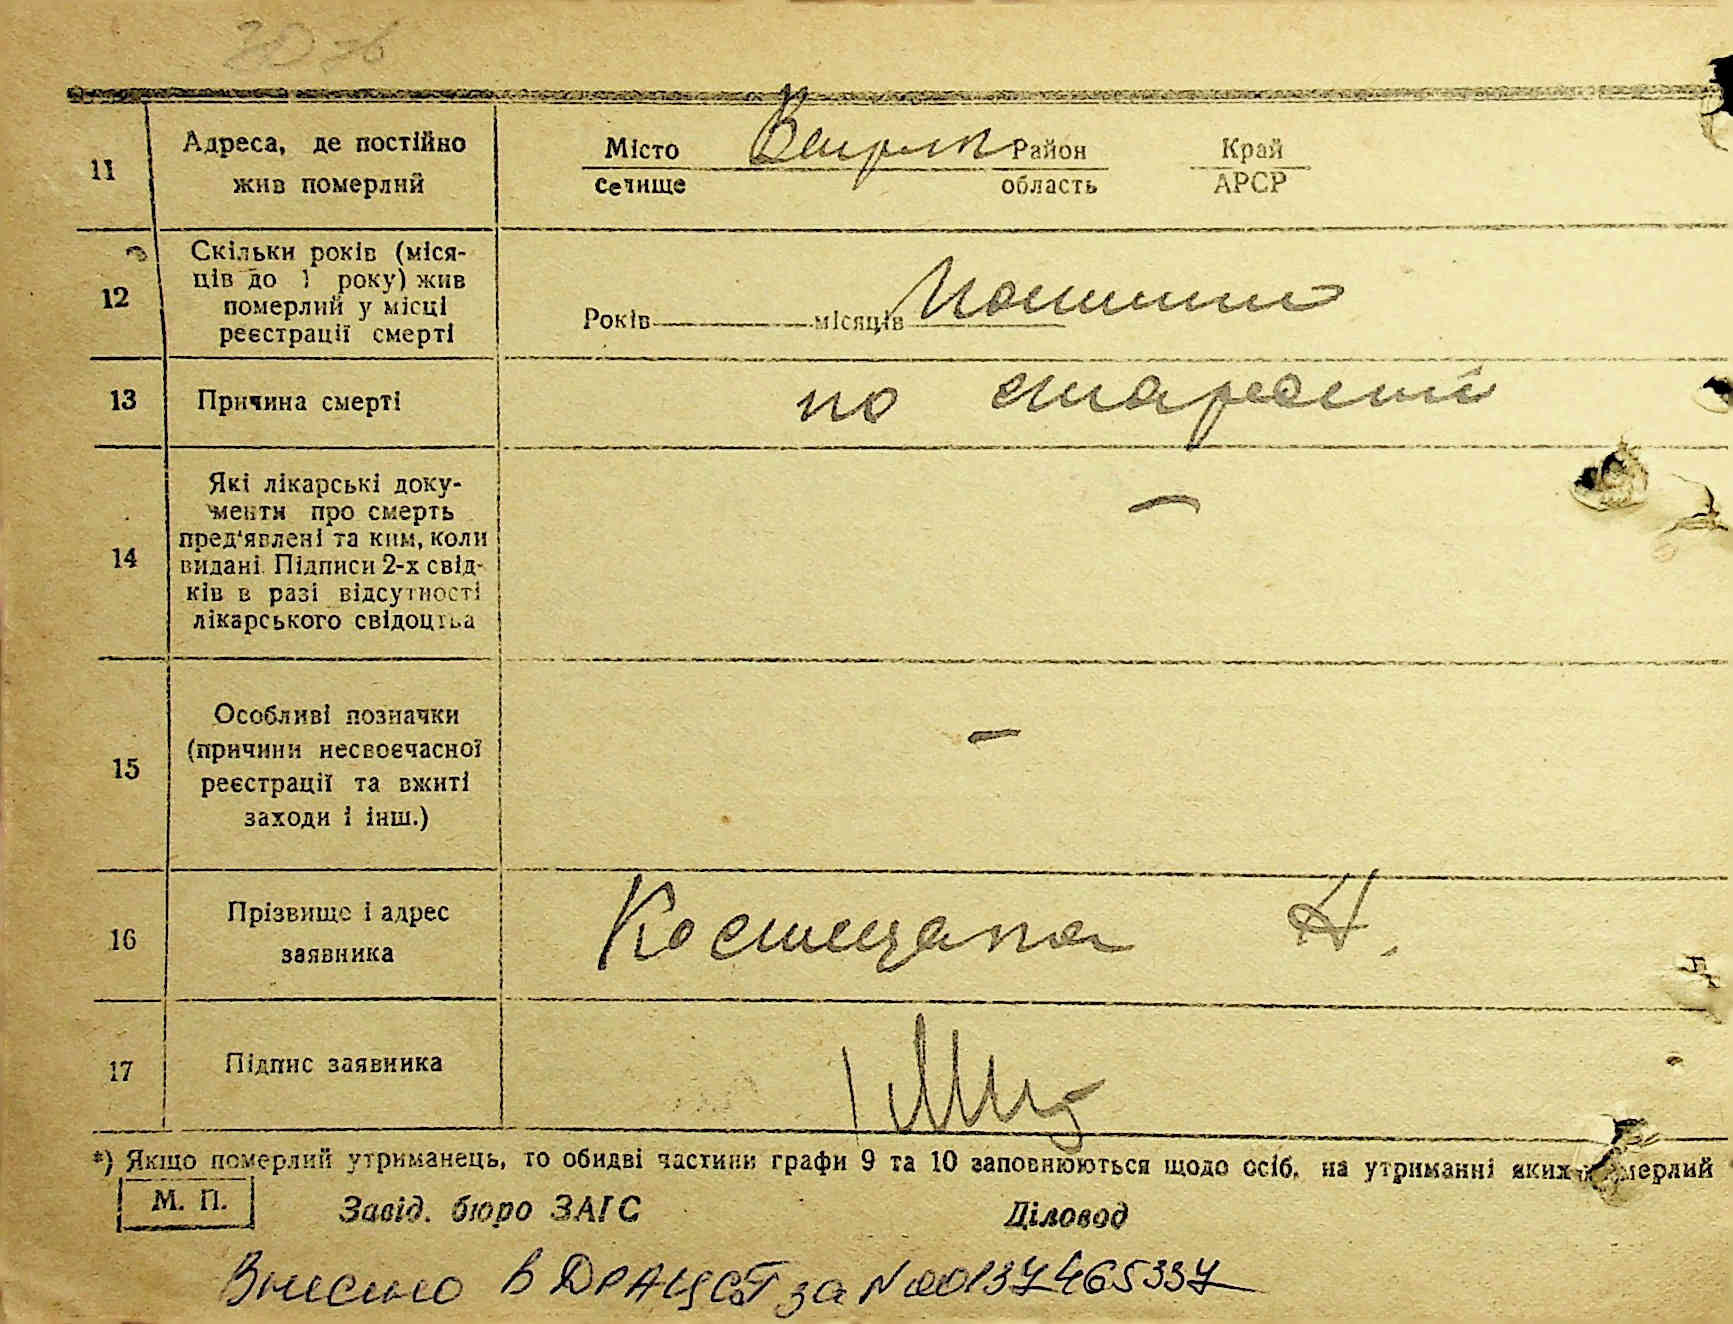 11
Адреса, де постійно
жив померлий
Місто
селище
Район
область
Край
АРСР
12
Скільки років (міся-
ців до 1 року) жив
померлий у місці
реєстрації смерті
Років місяців
13
Причина смерті
по старости
14
Які лікарські доку-
менти про смерть
пред'явлені та ким, коли
видані. Підписи 2-х свід-
ків в разі відсутності
лікарського свідоцтва
–
15
Особливі позначки
(причини несвоєчасної
реєстрації та вжиті
заходи і інш.)
–
16
Прізвище і адрес
заявника
Н.
17
Підпис заявника
*) Якщо померлий утриманець, то обидві частини графи 9 та 10 заповнюються щодо осіб, на утриманні яких померлий
М. П.
Завід. бюро ЗАГС
Діловод
Внесено в ДРАЦСГ за №00137465337